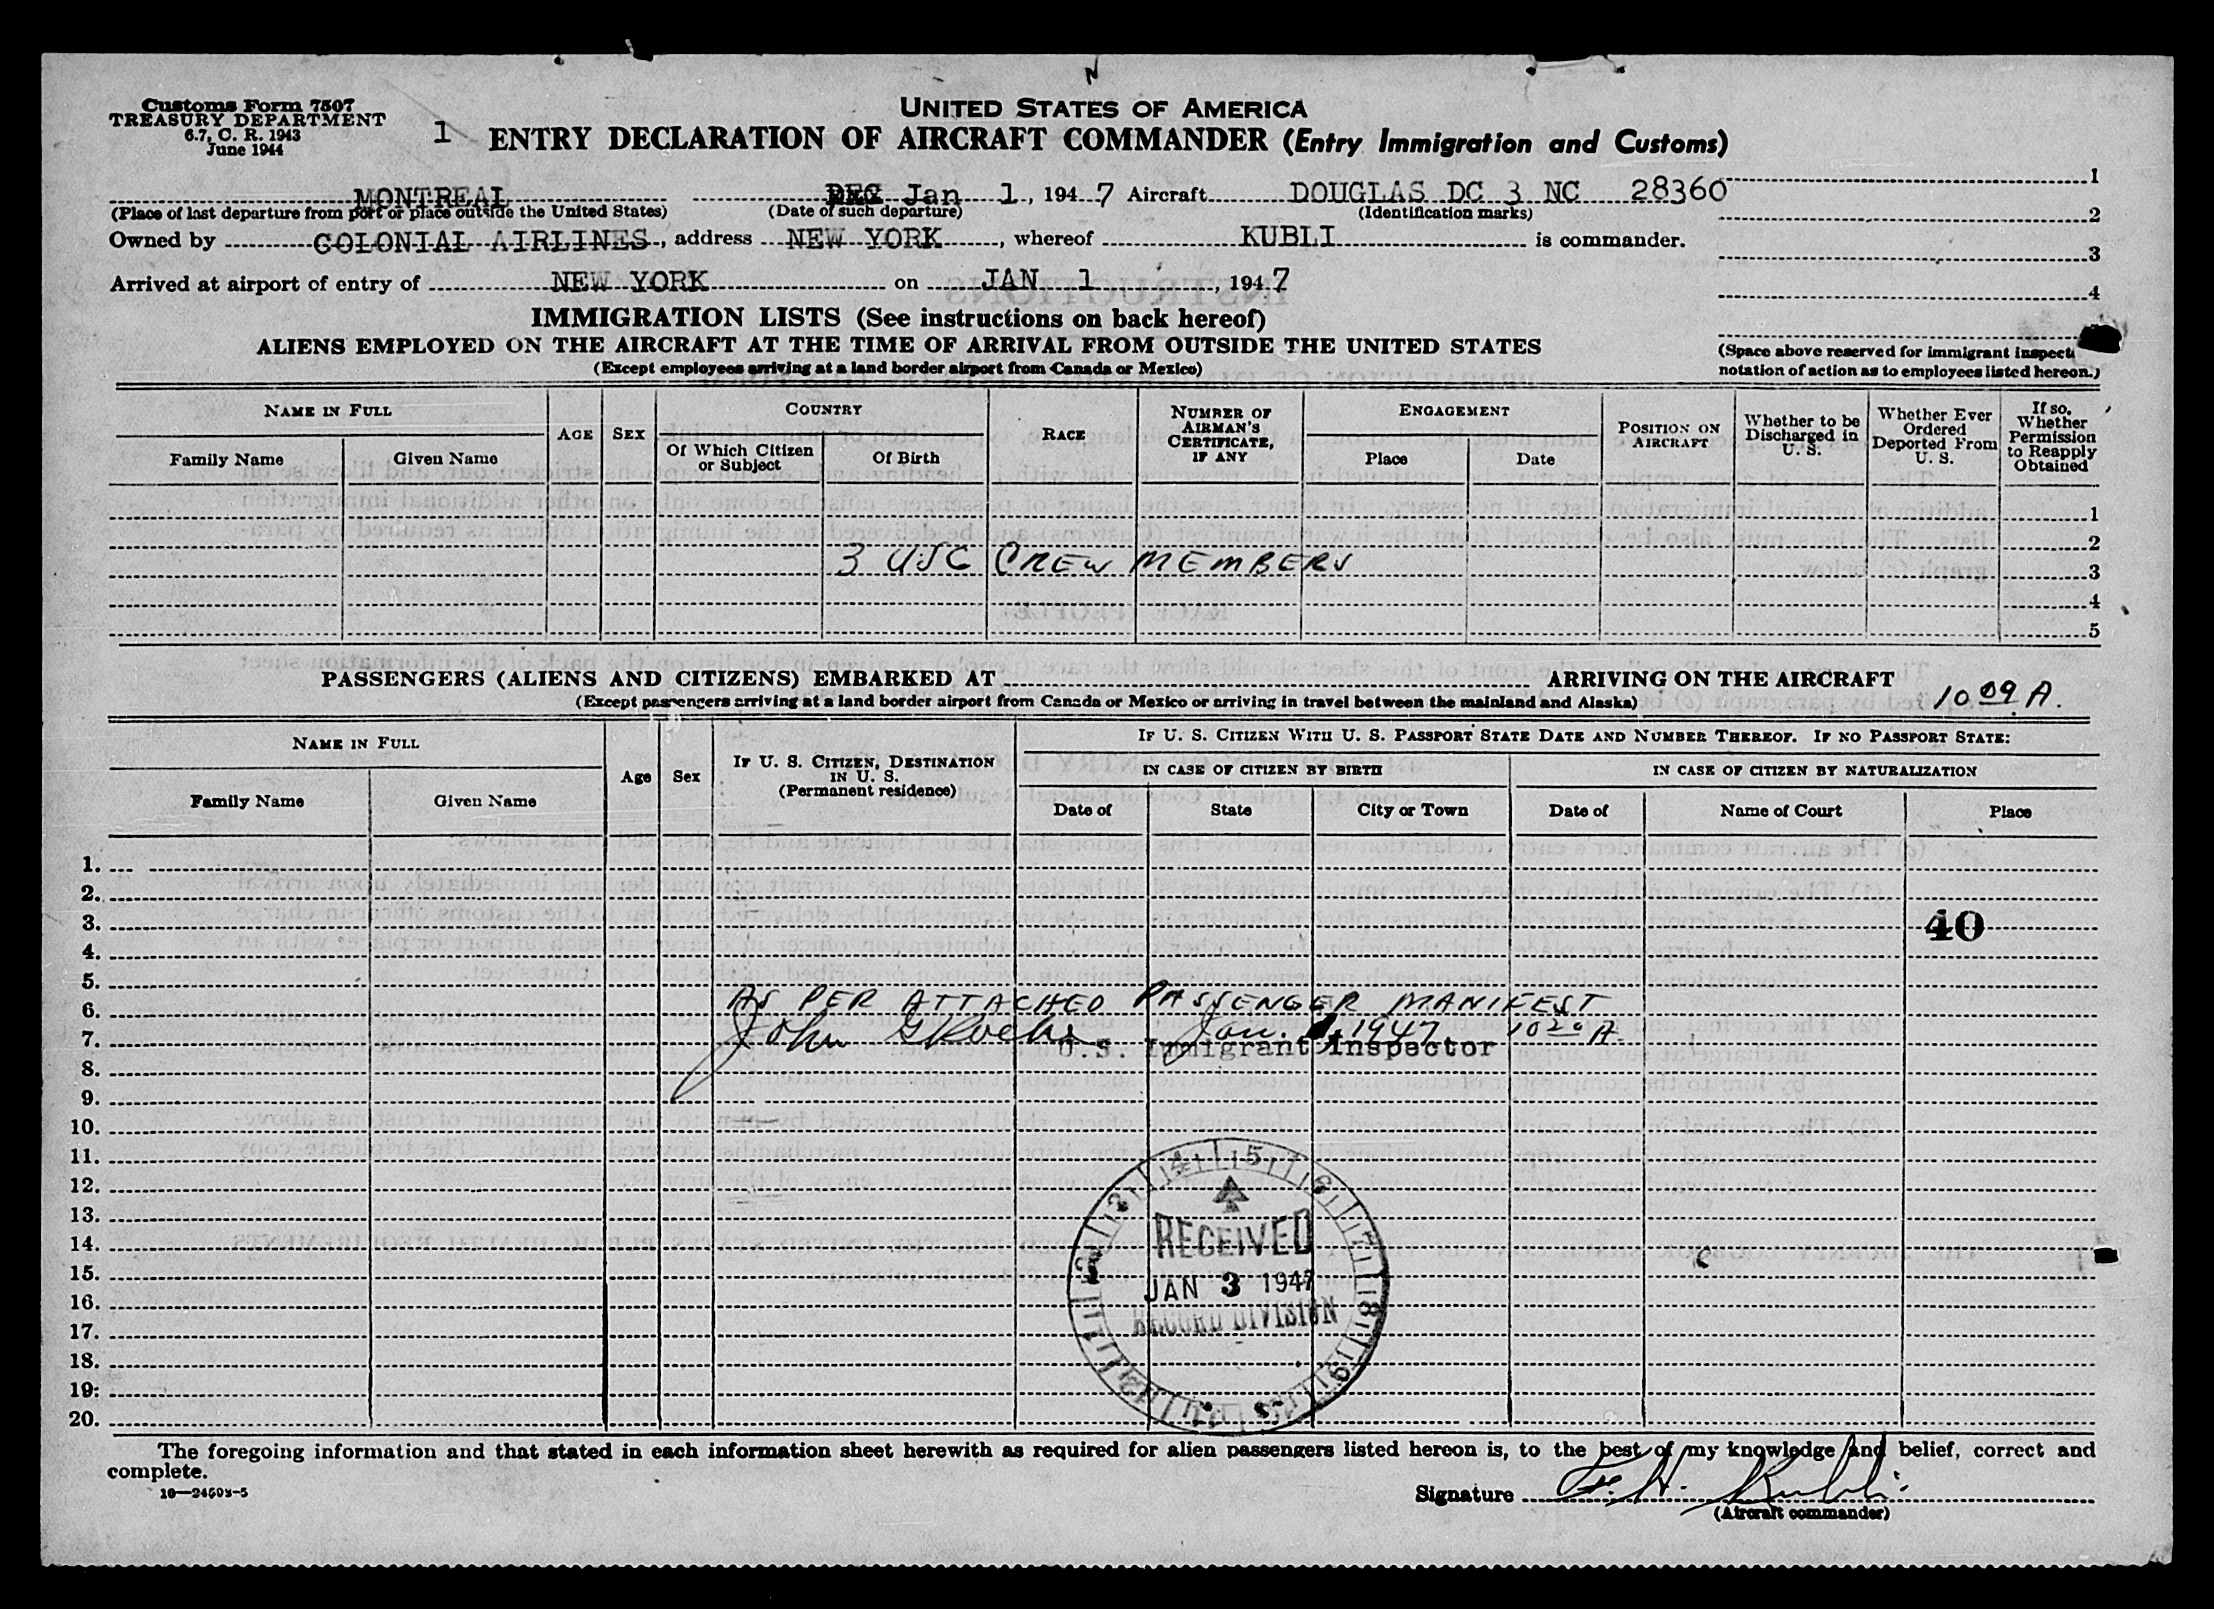 Customs Form 7507
TREASURY DEPARTMENT
6.7, C. R. 1943
June 1944
1
UNITED STATES OF AMERICA
ENTRY DECLARATION OF AIRCRAFT COMMANDER (Entry Immigration and Customs)
MONTREAL DEC Jan 1, 1947 Aircraft DOUGLAS DC 3 NC 28360
(Place of last departure from port or place outside the United States) (Date of such departure) (Identification marks)
Owned by COLONIAL AIRLINES, address NEW YORK, whereof KUBLI is commander.
Arrived at airport of entry of NEW YORK on JAN 1, 1947
1
2
3
4
(Space above reserved for immigrant inspect
notation of action as to employees listed hereon.)
IMMIGRATION LISTS (See instructions on back hereof)
ALIENS EMPLOYED ON THE AIRCRAFT AT THE TIME OF ARRIVAL FROM OUTSIDE THE UNITED STATES
(Except employees arriving at a land border airport from Canada or Mexico)
NAME IN FULL
Family Name Given Name
AGE SEX
COUNTRY
Of Which Citizen or Subject
Of Birth
RACE
NUMBER OF AIRMAN'S CERTIFICATE, IF ANY
ENGAGEMENT
Place Date
POSITION ON AIRCRAFT
Whether to be Discharged in U. S.
Whether Ever Ordered Deported From U. S.
If so, Whether Permission to Reapply Obtained
1
2
3 USC CREW MEMBERS 3
4
5
PASSENGERS (ALIENS AND CITIZENS) EMBARKED AT ARRIVING ON THE AIRCRAFT
(Except passengers arriving at a land border airport from Canada or Mexico or arriving in travel between the mainland and Alaska) 10 09 A.
NAME IN FULL
Family Name Given Name
Age Sex
IF U. S. CITIZEN, DESTINATION IN U. S.
(Permanent residence)
IF U. S. CITIZEN WITH U. S. PASSPORT STATE DATE AND NUMBER THEREOF. IF NO PASSPORT STATE:
IN CASE OF CITIZEN BY BIRTH IN CASE OF CITIZEN BY NATURALIZATION
Date of State City or Town Date of Name of Court Place
1.
2.
3. 40
4.
5.
6. AS PER ATTACHED PASSENGER MANIFEST
7. John G Roche Jan. 1, 1947 10 20 A.
U.S. Immigrant Inspector
8.
9.
10.
11.
12.
13.
14.
15.
16.
17.
18.
19.
20.
RECEIVED
JAN 3 1947
RECORD DIVISION
The foregoing information and that stated in each information sheet herewith as required for alien passengers listed hereon is, to the best of my knowledge and belief, correct and
complete.
Signature F. H. Kubli
(Aircraft commander)